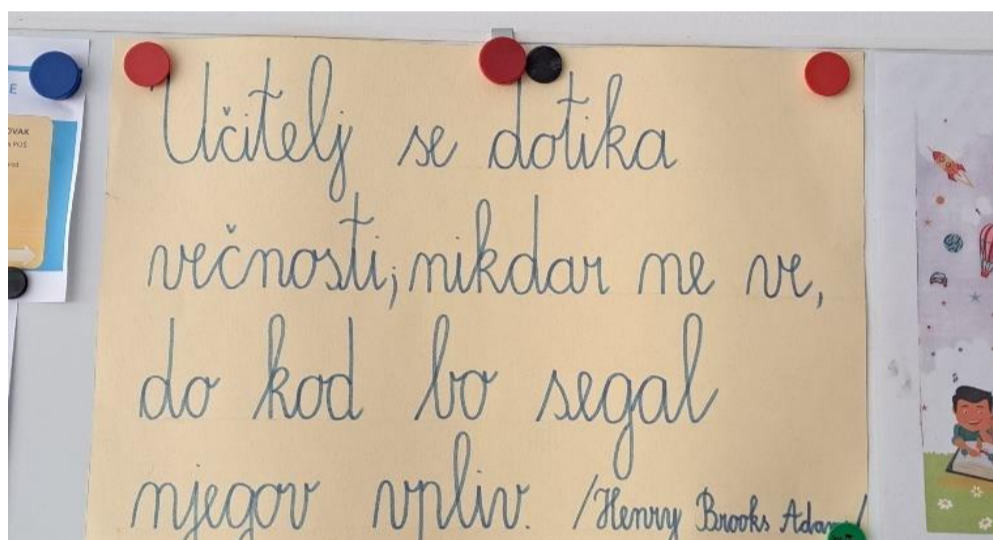 Učitelj se dotika
večnosti; nikdar ne ve,
do kod bo segal
njegov vpliv. /Henry Brooks